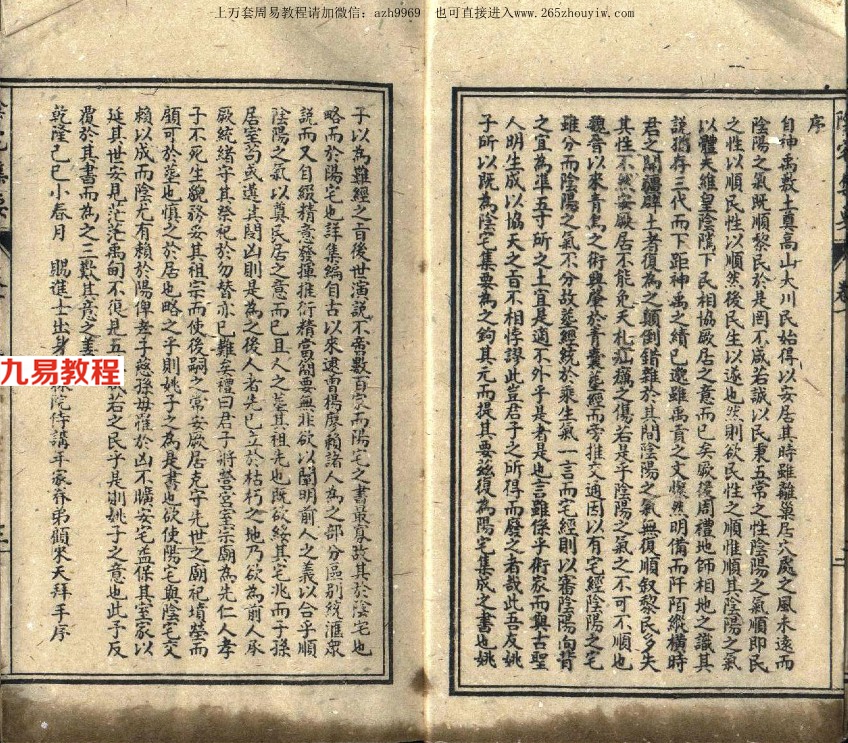 上万套周易教程请加微信：azh9969　也可直接进入www.265zhouyiw.com
序
自神禹敷土奠高山大川民始得以安居其時雖離巢居穴處之風未遠而
陰陽之氣既順黎民於是罔不咸若誠以民秉五常之性陰陽之氣順即民
之性以順民性以順然後民生以遂也然則欲民性之順惟順其陰陽之氣
以體天維皇陰隲下民相協厥居之意而已矣厥後周禮地師相地之識其
說猶存三代而下距神禹之績已邈雖禹貢之文燦然明備而阡陌縱横時
君之開疆辟土者復為之顛倒錯雜於其間陰陽之氣無復順叙黎民多失
其性不然安厥居不能免夭札疝癘之傷若是乎陰陽之氣之不可不順也
魏晋以來青烏之術興肇於青囊塟經而旁推交通因以有宅經陰陽之宅
雖分而陰陽之氣不分故塟經統於乘生氣一言而宅經則以審陰陽向背
之宜為凖五寸所之土宜是適不外乎是者是也言雖係乎術家而與古聖
人明生成以協天之旨不相悖謬此豈君子之所得而廢之者哉此吾友姚
子所以既為陰宅集要為之鈎其元而提其要玆復為陽宅集成之書也姚
子以為難經之旨後世演説不啻數百家而陽宅之書最夥故其於陰宅也
略而於陽宅也詳集編自古以來速曹楊廖賴諸人為之部分區别統滙衆
説而又自綴精意發揮推衍精當簡要無非欲以闡明前人之義以合乎順
陰陽之氣以奠民居之意而已且人之塟其祖先也既欲綏其宅兆而于孫
居室苟或違其閉凶則是為之後人者先已立於枯朽之地乃欲為前人承
厥統緒守其祭祀於勿替亦已難矣禮曰君子將營宫室宗廟為先仁人孝
子不死生貌務妥其祖宗而使後嗣之常安厥居克守先世之廟祀墳塋而
顧可於塟也慎之於居也略之乎則姚子之為是書也欲使陽宅與陰宅交
賴以成而陰尤有賴於陽俾孝子慈孫毋罹於凶不曠安宅益保其室家以
延其世安見茫茫禹甸不復見五 若之民乎是則姚子之意也此予反
覆於其書而為之三歎其意之美
乾隆己巳小春月　賜進士出身 林院侍講年家眷弟顧宋天拜手序
九易教程